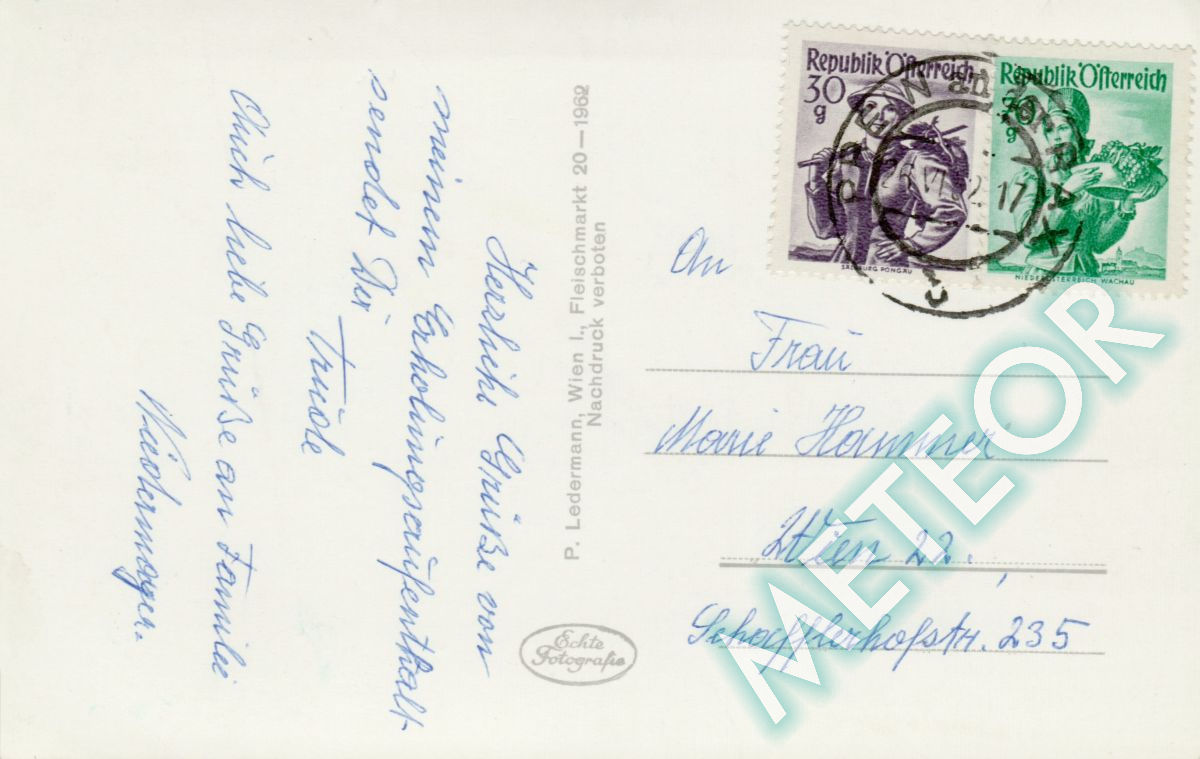 Herzliche Grüße von
meinem Erholungsaufenthalt
sendet Dir
Trude
Auch liebe Grüße an Familie
P. Ledermann, Wien I., Fleischmarkt 20—1962
Nachdruck verboten
Echte
Fotografie
Republik Österreich
30
g
SALZBURG PONGAU
Republik Österreich
g
NIEDERÖSTERREICH WACHAU
An
Frau
Marie Hammer
Wien 22.,
Schafflerhofstr. 235
METEOR